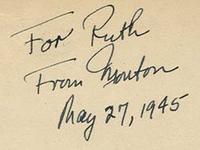 For Ruth
From Morton
May 27, 1945